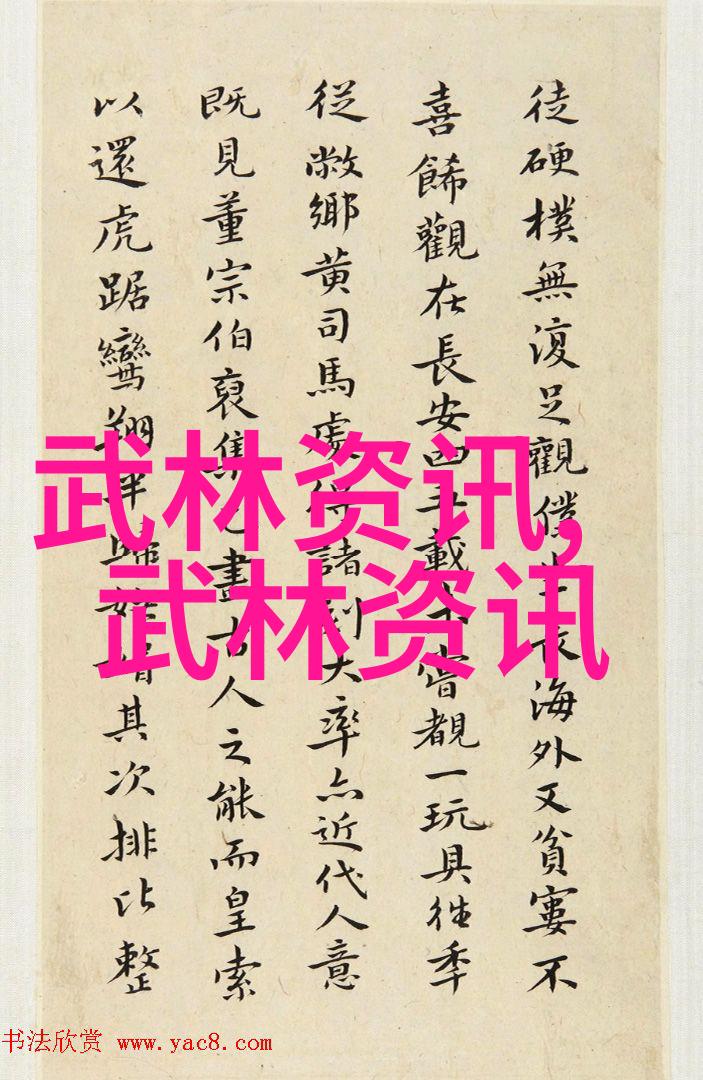 徒硬樸無復足觀僕生長海外又貧窶不
喜餙觀在長安四五載未嘗覩一玩具往季
從敝鄉黄司馬處得諸刻大率亦近代人意
既見董宗伯裒集盡古人之能而皇索
以還虎踞鸞翔 其次排比整
武林资讯,
武林资讯
书法欣赏 www.yac8.com